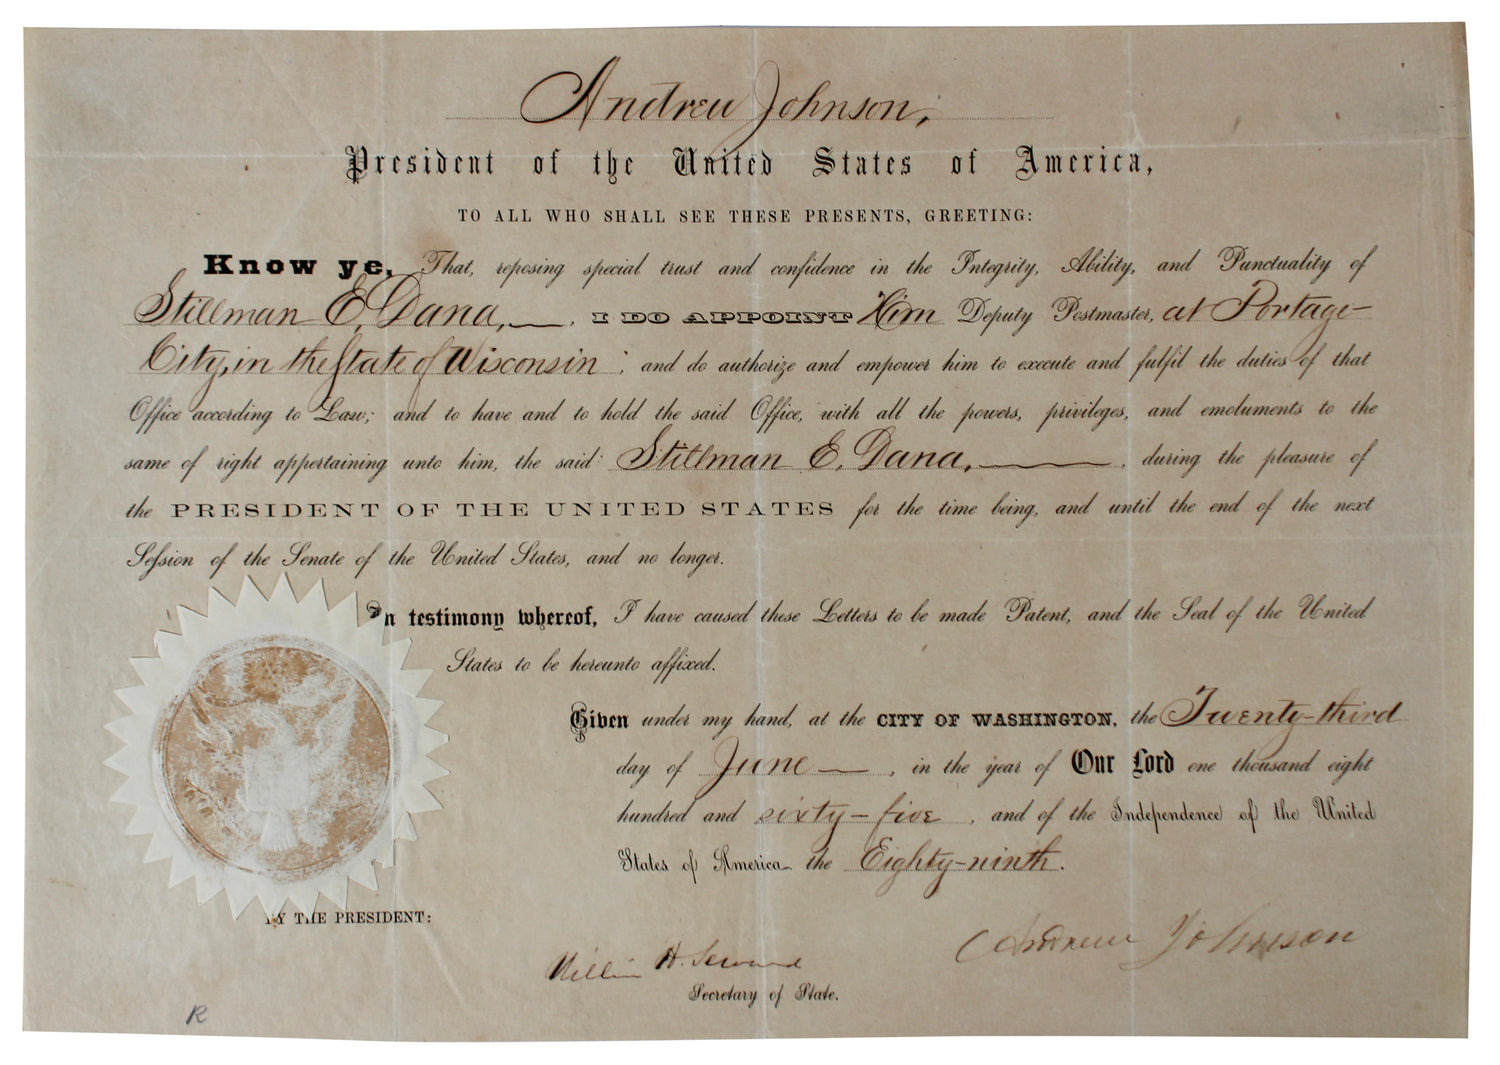 Andrew Johnson,
President of the United States of America,
TO ALL WHO SHALL SEE THESE PRESENTS, GREETING:
Know ye, That, reposing special trust and confidence in the Integrity, Ability, and Punctuality of
Stillman E. Dana, I DO APPOINT Him Deputy Postmaster, at Portage-
City, in the State of Wisconsin; and do authorize and empower him to execute and fulfil the duties of that
Office according to Law; and to have and to hold the said Office, with all the powers, privileges, and emoluments to the
same of right appertaining unto him, the said Stillman E. Dana, during the pleasure of
the PRESIDENT OF THE UNITED STATES for the time being, and until the end of the next
Seſsion of the Senate of the United States, and no longer.
In testimony whereof, I have caused these Letters to be made Patent, and the Seal of the United
States to be hereunto affixed.
Given under my hand, at the CITY OF WASHINGTON, the Twenty-third
day of June, in the year of Our Lord one thousand eight
hundred and sixty-five, and of the Independence of the United
States of America the Eighty-ninth.
BY THE PRESIDENT:
Andrew Johnson
William H. Seward
Secretary of State.
R